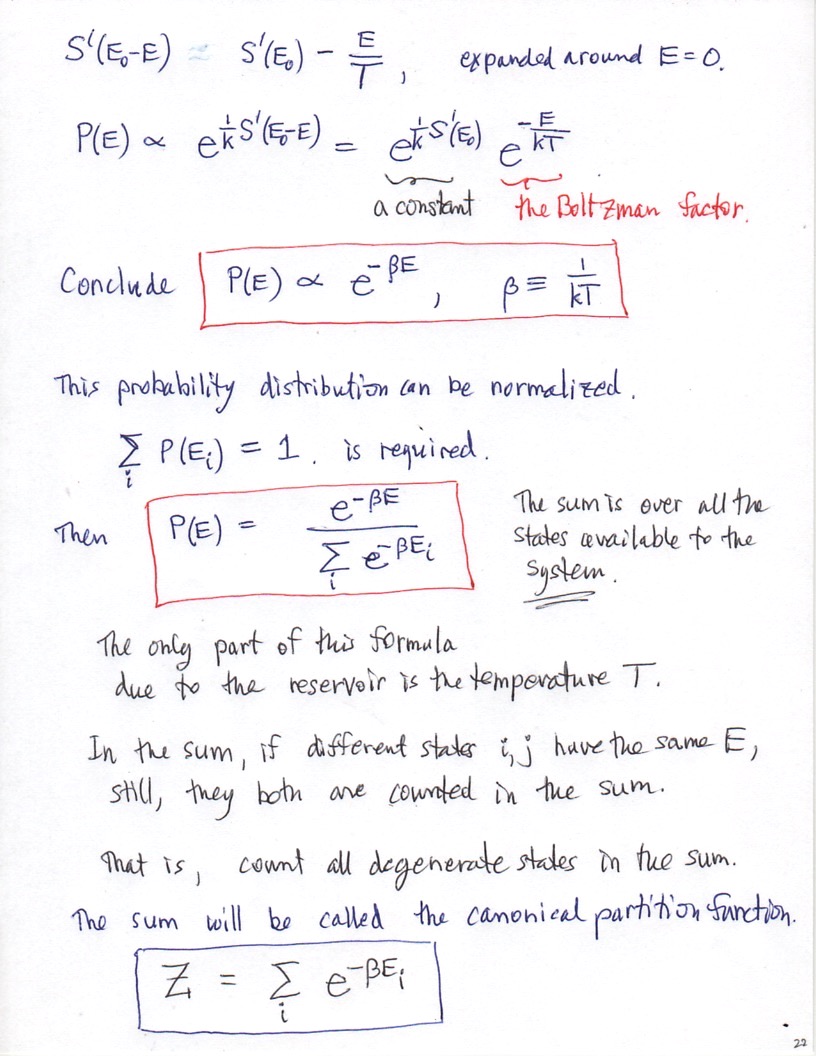 S'(E₀-E) ≈ S'(E₀) - E/T, expanded around E=0.
P(E) ∝ e^{1/k S'(E₀-E)} = e^{1/k S'(E₀)} e^{-E/kT}
a constant the Boltzman factor.
Conclude P(E) ∝ e^{-βE}, β ≡ 1/kT
This probability distribution can be normalized.
∑_i P(E_i) = 1. is required.
Then P(E) = e^{-βE} / ∑_i e^{-βE_i}
The sum is over all the
states available to the
system.
The only part of this formula
due to the reservoir is the temperature T.
In the sum, if different states i,j have the same E,
still, they both are counted in the sum.
That is, count all degenerate states in the sum.
The sum will be called the canonical partition function.
Z = ∑_i e^{-βE_i}
22